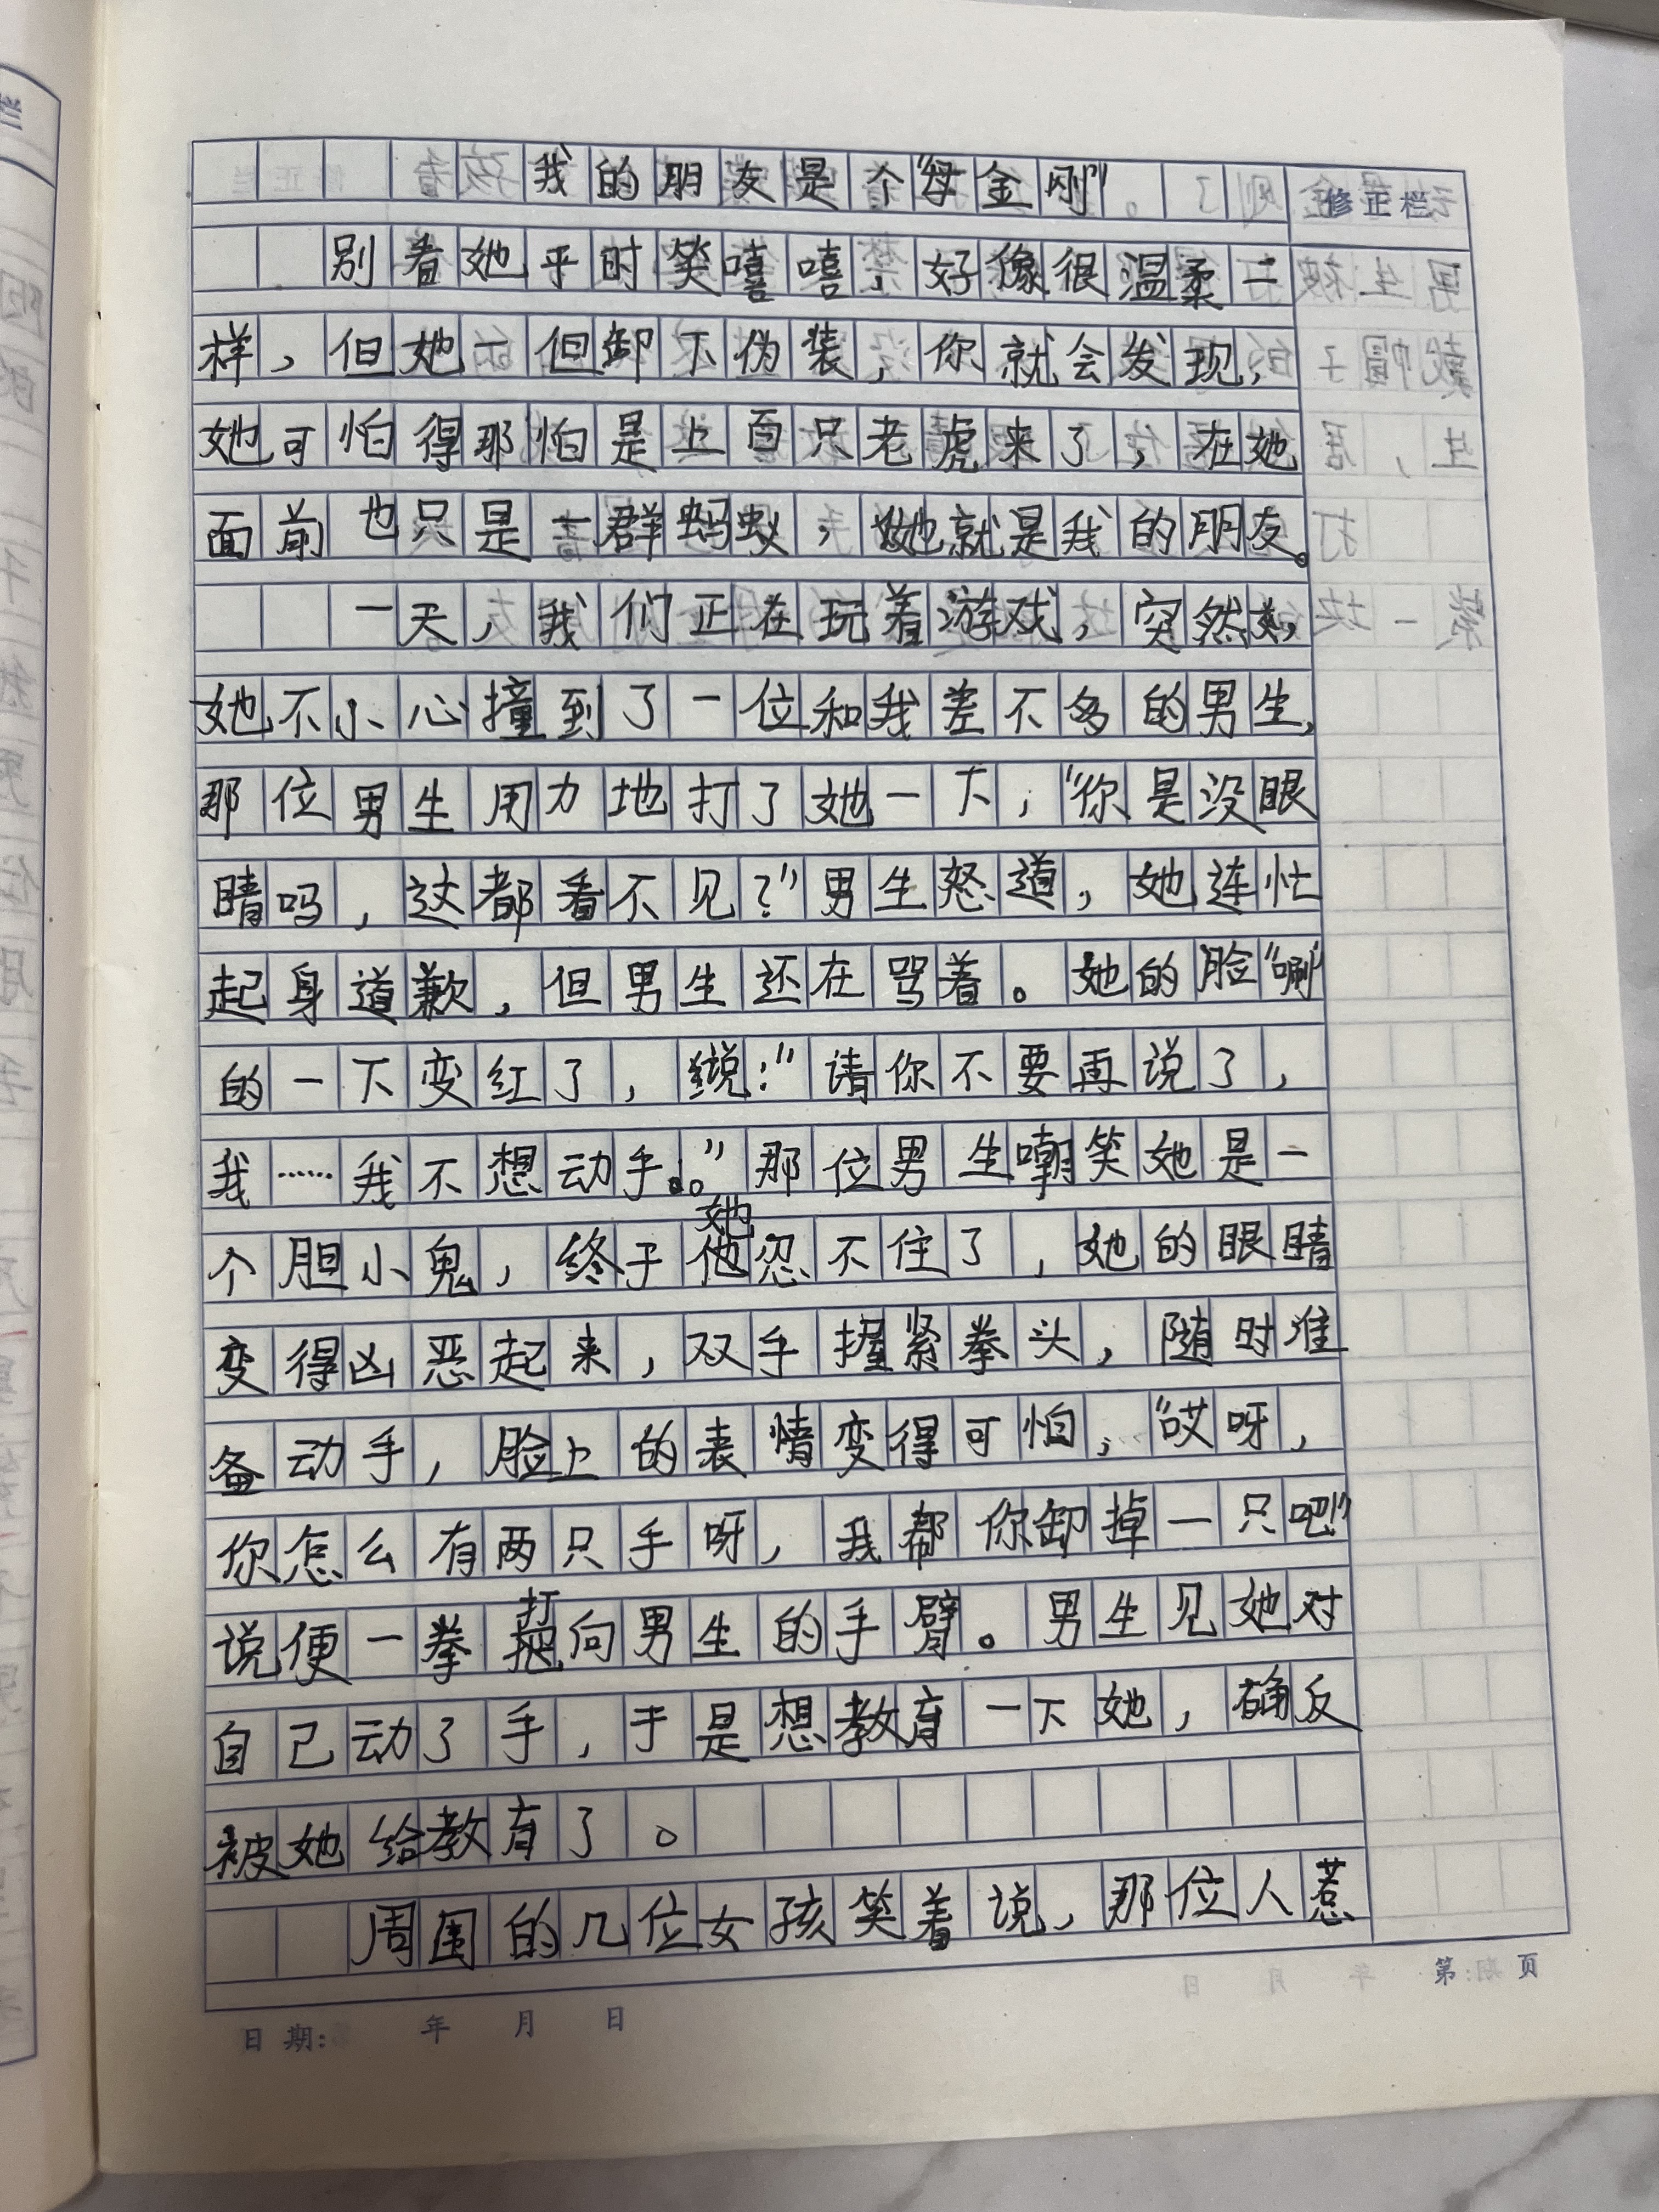 我的朋友是个“母金刚”
修正栏
别看她平时笑嘻嘻，好像很温柔一
样，但她一但卸下伪装，你就会发现，
她可怕得那怕是上百只老虎来了，在她
面前也只是一群蚂蚁，她就是我的朋友。
一天，我们正在玩着游戏，突然，
她不小心撞到了一位和我差不多的男生，
那位男生用力地打了她一下，“你是没眼
睛吗，这都看不见？”男生怒道，她连忙
起身道歉，但男生还在骂着。她的脸“唰”
的一下变红了，说：“请你不要再说了，
我……我不想动手。”那位男生嘲笑她是一
个胆小鬼，终于她忍不住了，她的眼睛
变得凶恶起来，双手握紧拳头，随时准
备动手，脸上的表情变得可怕，“哎呀，
你怎么有两只手呀，我帮你卸掉一只吧！”
说便一拳打向男生的手臂。男生见她对
自己动了手，于是想教育一下她，确反
被她给教育了。
周围的几位女孩笑着说，那位人惹
日期： 年 月 日
第 页